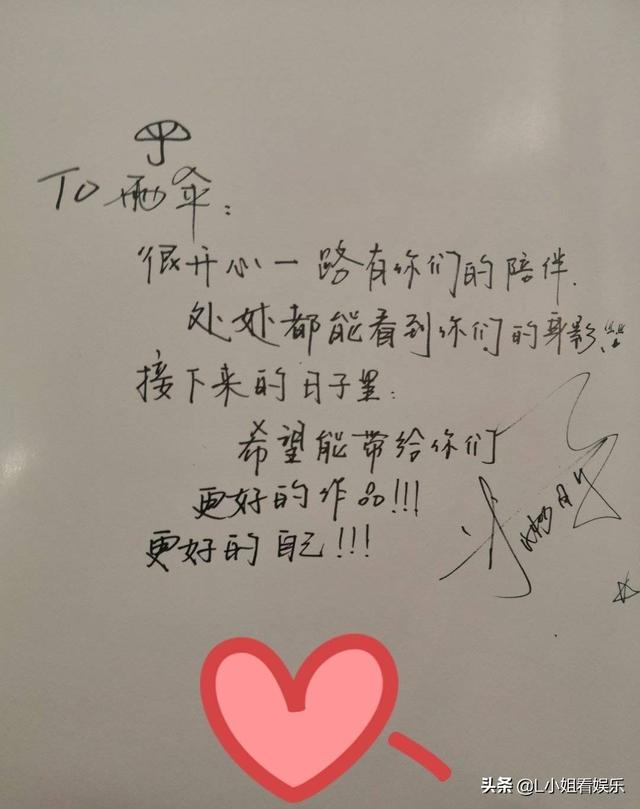 To 伞:
很开心一路有你们的陪伴.
处处都能看到你们的身影!!!
接下来的日子里:
希望能带给你们
更好的作品!!!
更好的自己!!!
头条 @L小姐看娱乐